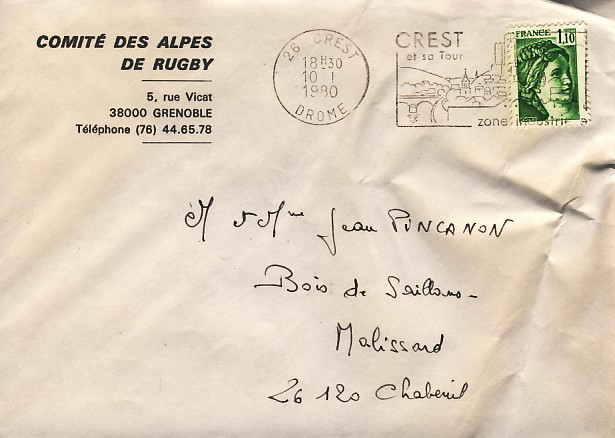 COMITÉ DES ALPES
DE RUGBY
5, rue Vicat
38000 GRENOBLE
Téléphone (76) 44.65.78
26 CREST
18H30
10 - 1
1980
DROME
CREST
et sa Tour
zone industrielle
FRANCE 1,10
M et Mme Jean PINCANON
Bois de Saillans -
Malissard
26 120 Chabeuil